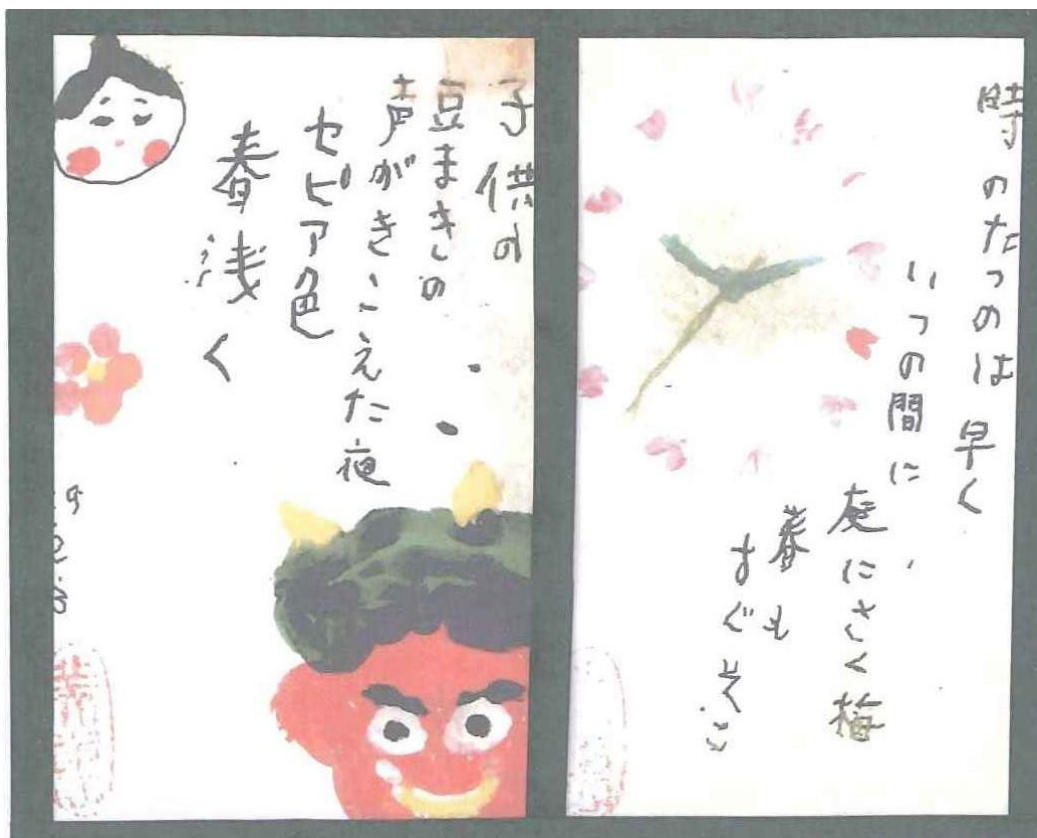 時のたつのは早く
いつの間に
庭にさく梅
春も
すぐそこ
子供の
豆まきの
声がきこえた夜
セピア色
春浅く